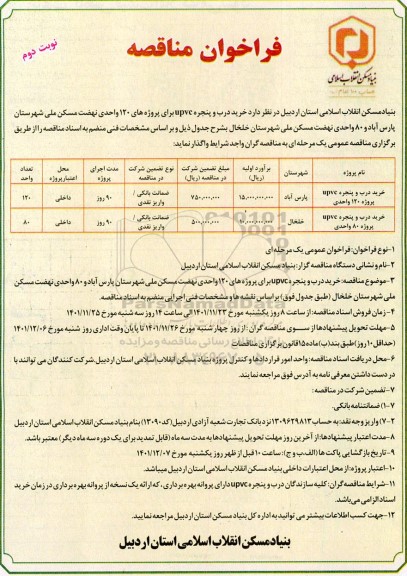 بنیاد مسکن انقلاب اسلامی
فراخوان مناقصه
نوبت دوم
بنیاد مسکن انقلاب اسلامی استان اردبیل در نظر دارد خرید درب و پنجره upvc برای پروژه های ۱۲۰ واحدی نهضت مسکن ملی شهرستان
پارس آباد و ۸۰ واحدی نهضت مسکن ملی شهرستان خلخال بشرح جدول ذیل و بر اساس مشخصات فنی منضم به اسناد مناقصه را از طریق
برگزاری مناقصه عمومی یک مرحله ای به مناقصه گران واجد شرایط واگذار نماید:
نام پروژه شهرستان برآورد اولیه (ریال) مبلغ تضمین شرکت در مناقصه (ریال) نوع تضمین شرکت در مناقصه مدت اجرای پروژه محل اعتبار پروژه تعداد واحد
خرید درب و پنجره upvc پروژه ۱۲۰ واحدی پارس آباد ۱۵,۰۰۰,۰۰۰,۰۰۰ ۷۵۰,۰۰۰,۰۰۰ ضمانت بانکی / واریز نقدی ۹۰ روز داخلی ۱۲۰
خرید درب و پنجره upvc پروژه ۸۰ واحدی خلخال ۵۰۰,۰۰۰,۰۰۰ ضمانت بانکی / واریز نقدی ۹۰ روز داخلی ۸۰
۱-نوع فراخوان: فراخوان عمومی یک مرحله ای
۲-نام و نشانی دستگاه مناقصه گزار: بنیاد مسکن انقلاب اسلامی استان اردبیل
۳-موضوع مناقصه: خرید درب و پنجره upvc برای پروژه های ۱۲۰ واحدی نهضت مسکن ملی شهرستان پارس آباد و ۸۰ واحدی نهضت مسکن
ملی شهرستان خلخال (طبق جدول فوق) بر اساس نقشه ها و مشخصات فنی اجرایی منضم به اسناد مناقصه.
۴- زمان فروش اسناد مناقصه: از ساعت ۸ روز یکشنبه مورخ ۱۴۰۱/۱۱/۲۳ الی ساعت ۱۴ روز سه شنبه مورخ ۱۴۰۱/۱۱/۲۵
۵-مهلت تحویل پیشنهادها از سوی مناقصه گران: از روز چهارشنبه مورخ ۱۴۰۱/۱۱/۲۶ تا پایان وقت اداری روز شنبه مورخ ۱۴۰۱/۱۲/۰۶
(حداقل ۱۰ روز) طبق بند (ب) ماده ۱۵ قانون برگزاری مناقصات
۶-محل دریافت اسناد مناقصه: واحد امور قراردادها و کنترل پروژه بنیاد مسکن انقلاب اسلامی استان اردبیل. شرکت کنندگان می توانند با
در دست داشتن معرفی نامه به آدرس فوق مراجعه نمایند.
۷-تضمین شرکت در مناقصه:
۷-۱) ضمانتنامه بانکی.
۷-۲) واریز وجه نقد: به حساب ۱۳۰۹۶۲۹۸۱۳ نزد بانک تجارت شعبه آزادی اردبیل (کد ۱۳۰۹۰) بنام بنیاد مسکن انقلاب اسلامی استان اردبیل
۸-مدت اعتبار پیشنهادها: از آخرین روز مهلت تحویل پیشنهادها به مدت سه ماه (قابل تمدید برای یک دوره سه ماه دیگر) معتبر باشد.
۹- تاریخ بازگشایی پاکت ها (الف، ب و ج): ساعت ۱۰ قبل از ظهر روز یکشنبه مورخ ۱۴۰۱/۱۲/۰۷
۱۰-اعتبار پروژه از محل اعتبارات داخلی بنیاد مسکن انقلاب اسلامی استان اردبیل میباشد.
۱۱-شرایط مناقصه گران: کلیه سازندگان درب و پنجره upvc دارای پروانه بهره برداری، که ارائه یک نسخه از پروانه بهره برداری در زمان خرید
اسناد الزامی می باشد.
۱۲-جهت کسب اطلاعات بیشتر می توانید به اداره کل بنیاد مسکن اردبیل مراجعه نمایید.
بنیاد مسکن انقلاب اسلامی استان اردبیل